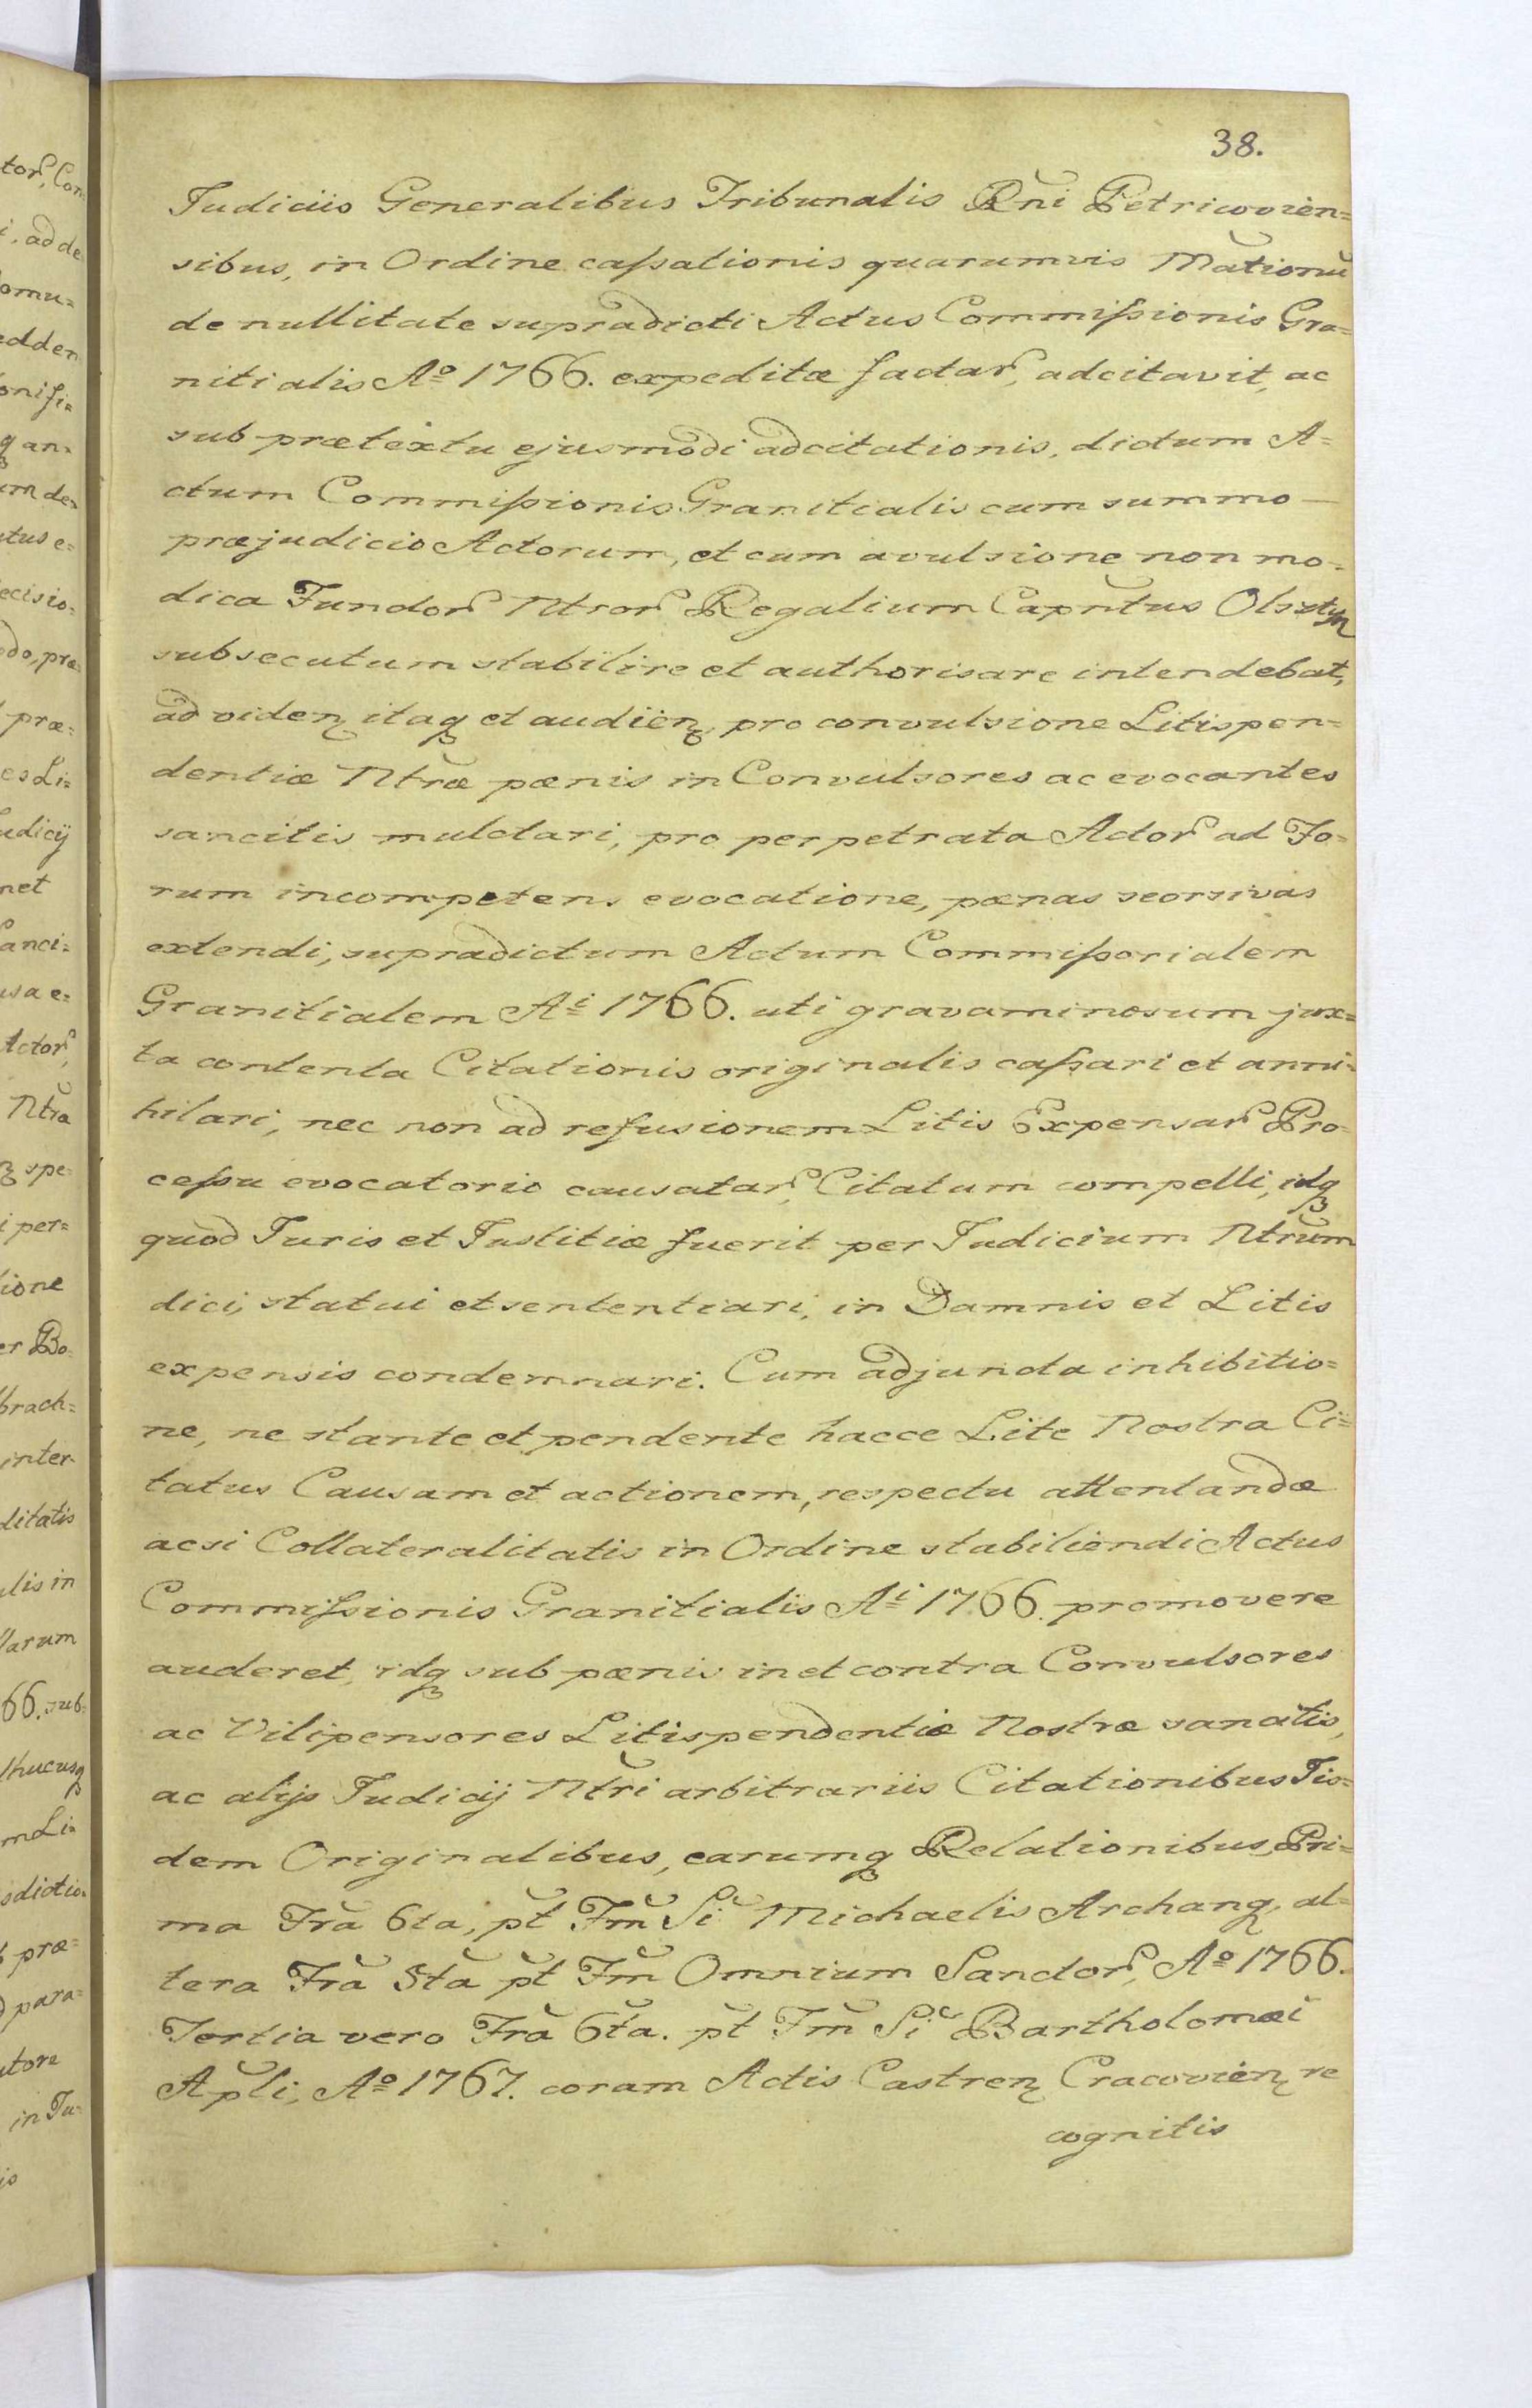 38.
Judiciis Generalibus Tribunalis Rni Petricovien=
sibus, in Ordine caſsationis quarumvis Mationũ
de nullitate supradicti Actus Commiſsionis Gra=
nitialis Aº 1766. expeditæ factar, adcitavit, ac
sub prætextu ejusmodi adcitationis, dictum A=
ctum Commiſsionis Granitialis cum summo —
præjudicio Actorum, et cum avulsione non mo=
dica Fundor Ntror Regalium Capntus Olsztyn
subsecutum stabilire et authorisare intendebat,
ad viden itaq et audien, pro convulsione Litispen=
dentiæ Ntræ pænis in Convulsores ac evocantes
sancitis mulctari, pro perpetrata Actor ad Fo=
rum incompetens evocatione, pænas seorsivas
extendi, supradictum Actum Commiſsorialem
Granitialem Ai 1766. uti gravaminosum jux=
ta contenta Citationis originalis caſsari et anni=
hilari, nec non ad refusionem Litis Expensar Pro=
ceſsu evocatorio causatar, Citatum compelli, idq
quod Juris et Justitiæ fuerit per Judicium Ntrum
dici, statui et sententiari, in Damnis et Litis
expensis condemnari. Cum adjuncta inhibitio=
ne, ne stante et pendente hacce Lite Nostra Ci=
tatus Causam et actionem, respectu attentandæ
acsi Collateralitatis in Ordine stabiliendi Actus
Commiſsionis Granitialis Ai 1766. promovere
auderet, idq sub pænis in et contra Convulsores
ac Vilipensores Litispendentiæ Nostræ sancitis,
ac alijs Judicij Ntri arbitrariis Citationibus Iis=
dem Originalibus, earumq Relationibus, Pri=
ma Fra 6ta, pt Fm Si Michaelis Archang, al=
tera Fra 5ta pt Fm Omnium Sanctor, Aº 1766.
Tertia vero Fra 6ta. pt Fm Si Bartholomæi
Apli, Aº 1767. coram Actis Castren Cracovien re
cognitis